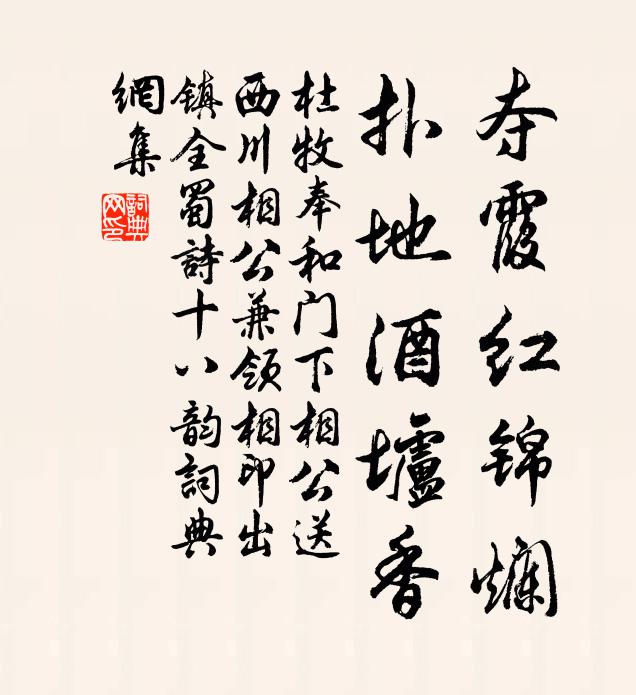 夺霞红锦烂
扑地酒壚香
杜牧奉和门下相公送
西川相公兼领相印出
镇全蜀詩十八韵詞典
網集
詞典
网印